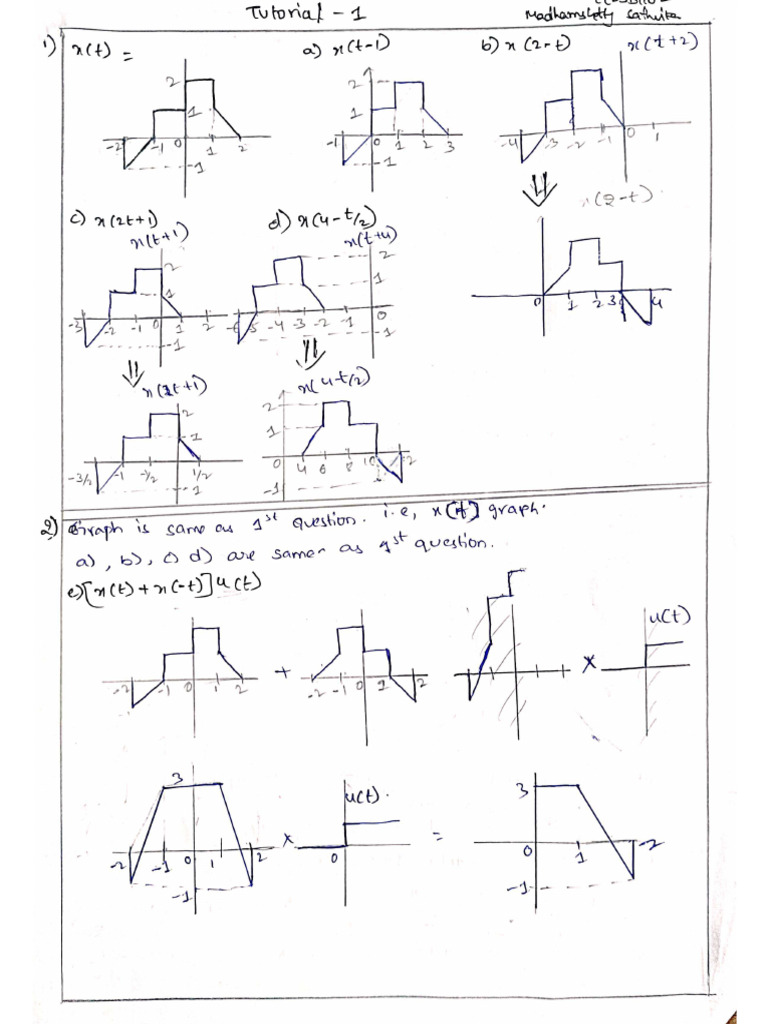 Tutorial - 1
1) x(t) =
a) x(t-1)
b) x (2-t)
x(t+2)
2
1
-2 -1 0 1 2
-1
2
1
-1 0 1 2 3
-1
-4 -3 -2 -1 0 1
x(2-t)
0 1 2 3 4
c) x(2t+1)
x(t+1)
d) x(4-t/2)
x(t+4)
2
1
-3 -2 -1 0 1 2
-1
2
1
-6 -5 -4 -3 -2 -1 0
-1
x(2t+1)
x(4-t/2)
2
1
-3/2 -1 -1/2 1/2
-1
2
1
0 4 6 8 10 12
-1
2) Graph is same as 1st question. i.e, x(t) graph.
a), b), c) d) are same as 1st question.
e) [x(t) + x(-t)] u(t)
u(t)
-2 -1 0 1 2
+
-2 -1 0 1 2
x
3
-2 -1 0 1 2
-1
x
u(t).
0
=
3
0 1 -2
-1